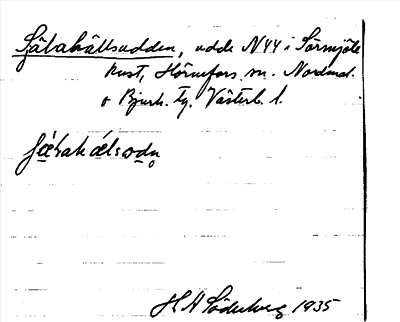 Sätahällsudden, udde NYY i Sörmjöle
kust, Hörnefors sn. Nordmal.
o Bjurh. tg. Västerb. l.
H A Söderberg 1935